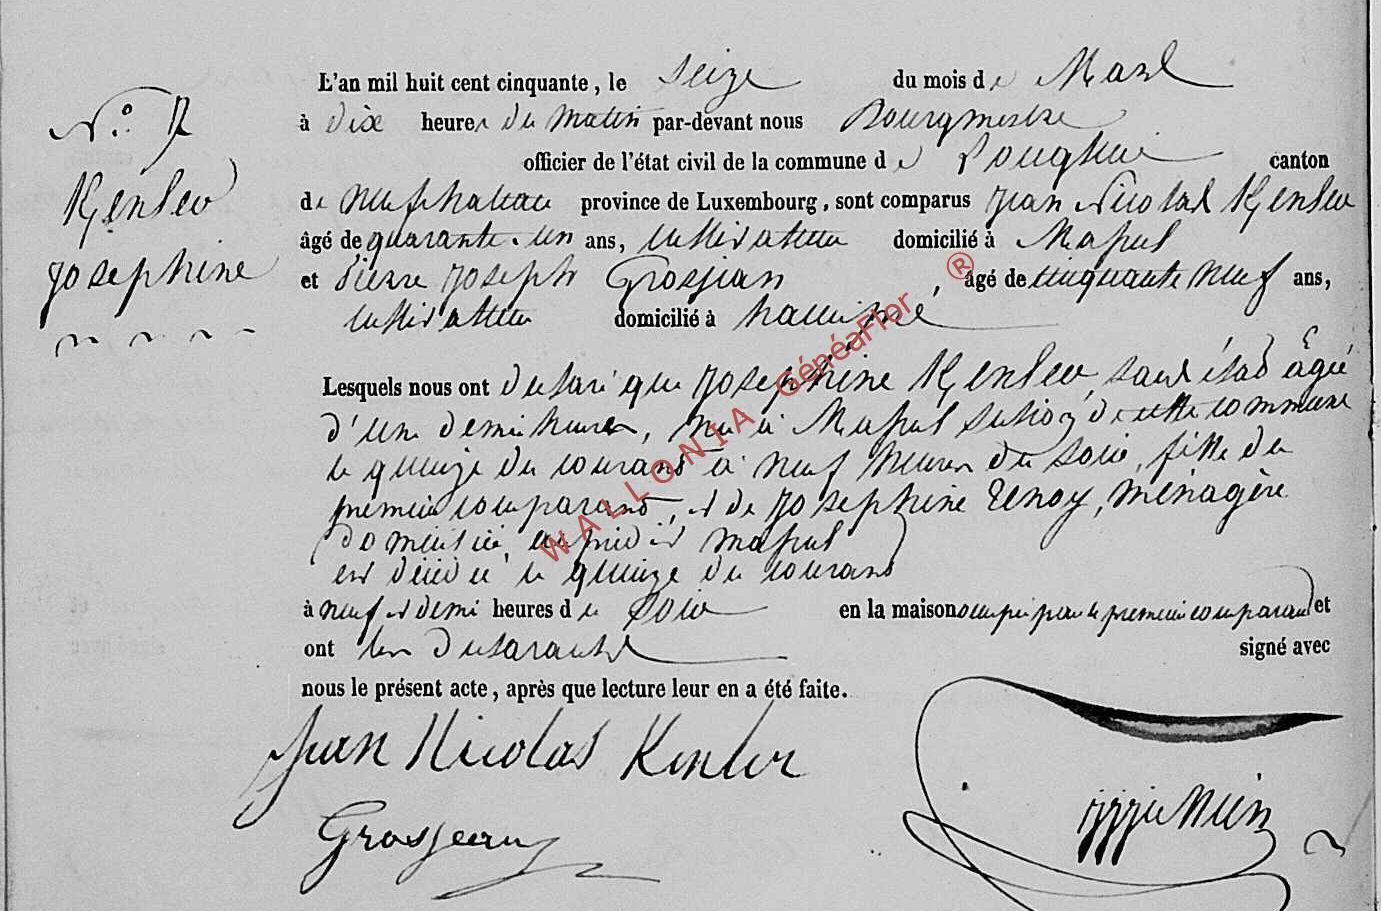 N.° 7
Kenler
Josephine
L'an mil huit cent cinquante, le seize du mois de Mars
à dix heures du matin par-devant nous Bourgmestre
officier de l'état civil de la commune de canton
de neufchateau province de Luxembourg, sont comparus Jean Nicolas Kenler
âgé de quarante-un ans, cultivateur domicilié à
et Pierre Joseph Grosjean âgé de cinquante neuf ans,
cultivateur domicilié à
Lesquels nous ont déclaré que Josephine Kenler, sans état âgée
d'une demi heure, née à section de cette commune
le quinze du courant à neuf heures du soir, fille du
premier comparant, et de Josephine ménagère
domiciliée, au prédit
est décédée le quinze du courant
à neuf et demi heures du soir en la maison occupée par le premier comparant et
ont les déclarants signé avec
nous le présent acte, après que lecture leur en a été faite.
Jean Nicolas Kenler
Grosjean
WALLONIA GénéaFlor ®